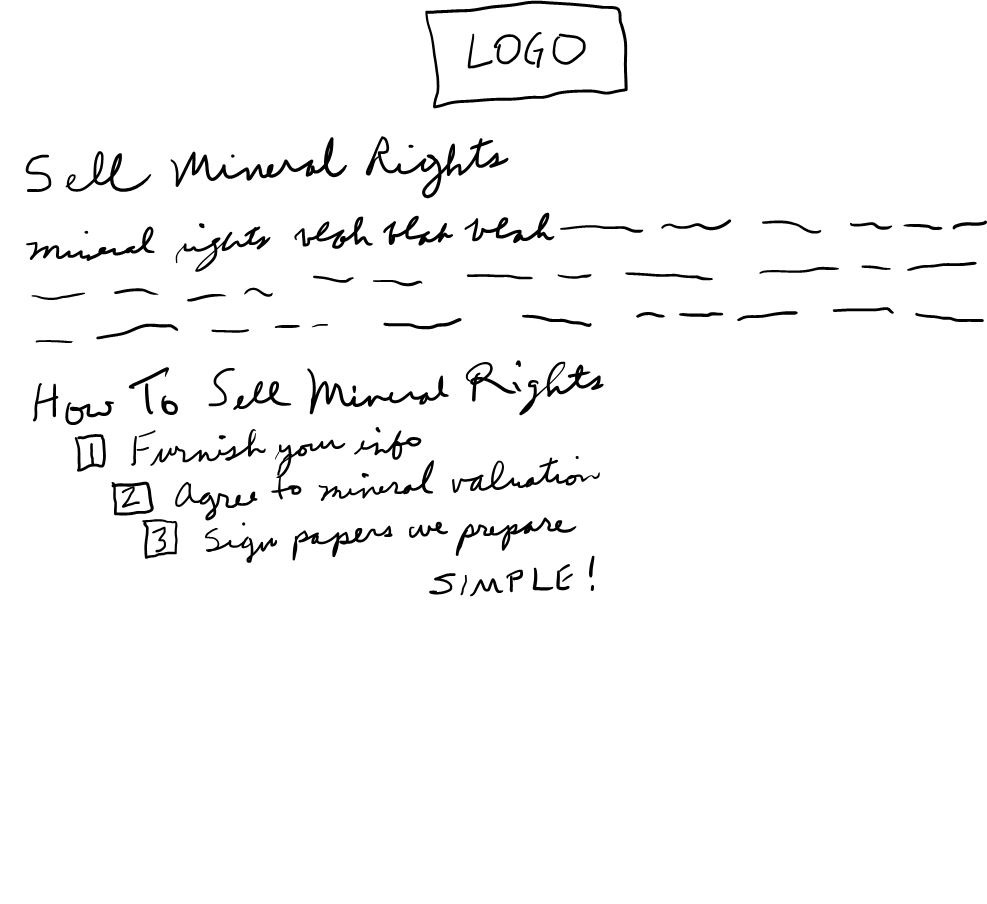 LOGO
Sell Mineral Rights
mineral rights blah blah blah
How To Sell Mineral Rights
1 Furnish your info
2 Agree to mineral valuation
3 Sign papers we prepare
SIMPLE!